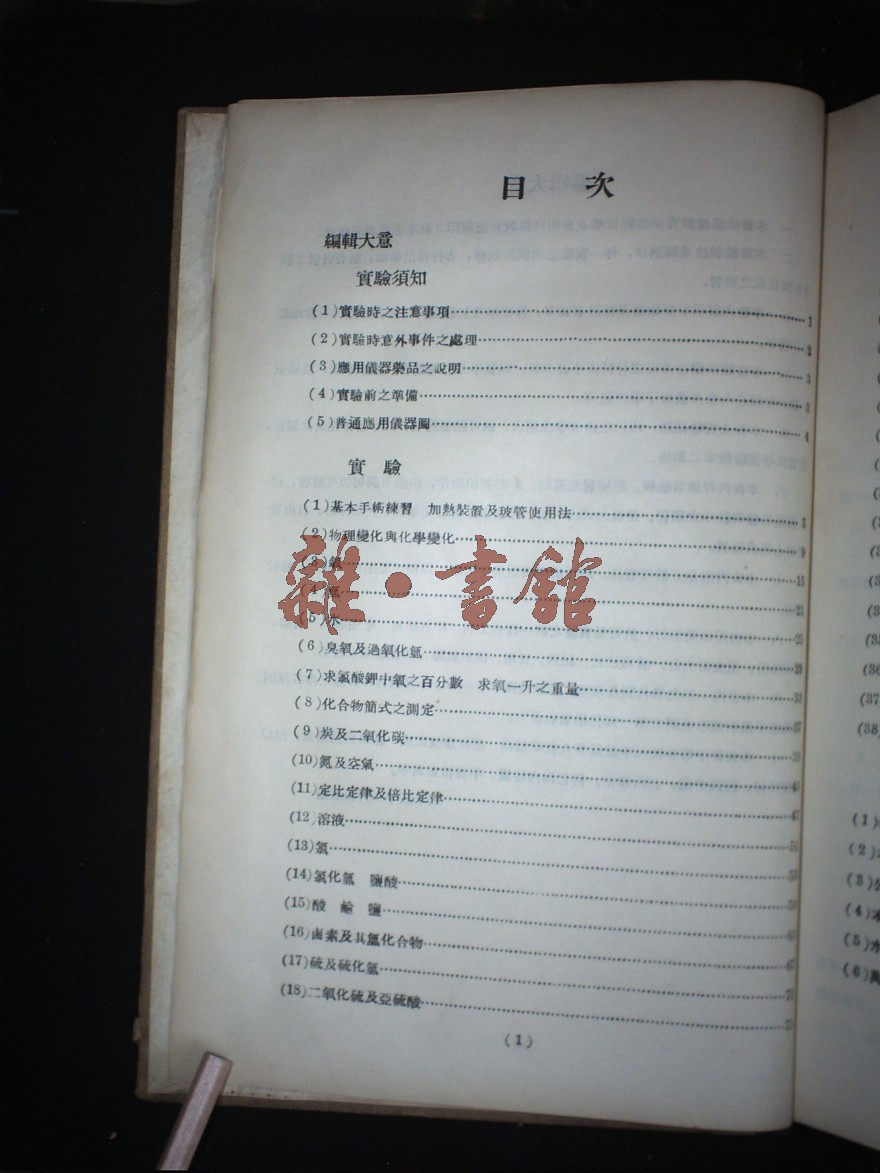 目 次
編輯大意
實驗須知
(1)實驗時之注意事項 1
(2)實驗時意外事件之處理 2
(3)應用儀器藥品之說明
(4)實驗前之準備 3
(5)普通應用儀器圖 4
實 驗
(1)基本手術練習 加熱裝置及玻管使用法 5
(2)物理變化與化學變化 9
(3) 15
21
(5)水 25
雜·書館
(6)臭氧及過氧化氫 29
(7)求氯酸鉀中氧之百分數 求氧一升之重量 33
(8)化合物簡式之測定 37
(9)炭及二氧化碳 39
(10)氮及空氣
(11)定比定律及倍比定律 47
(12)溶液 54
(13)氯
(14)氯化氫 鹽酸
(15)酸 鹼 鹽
(16)鹵素及其氫化合物 67
(17)硫及硫化氫
(18)二氧化硫及亞硫酸
(1)
(36)
(37)
(38)
(1)
(2)
(3)
(4)
(5)水
(6)